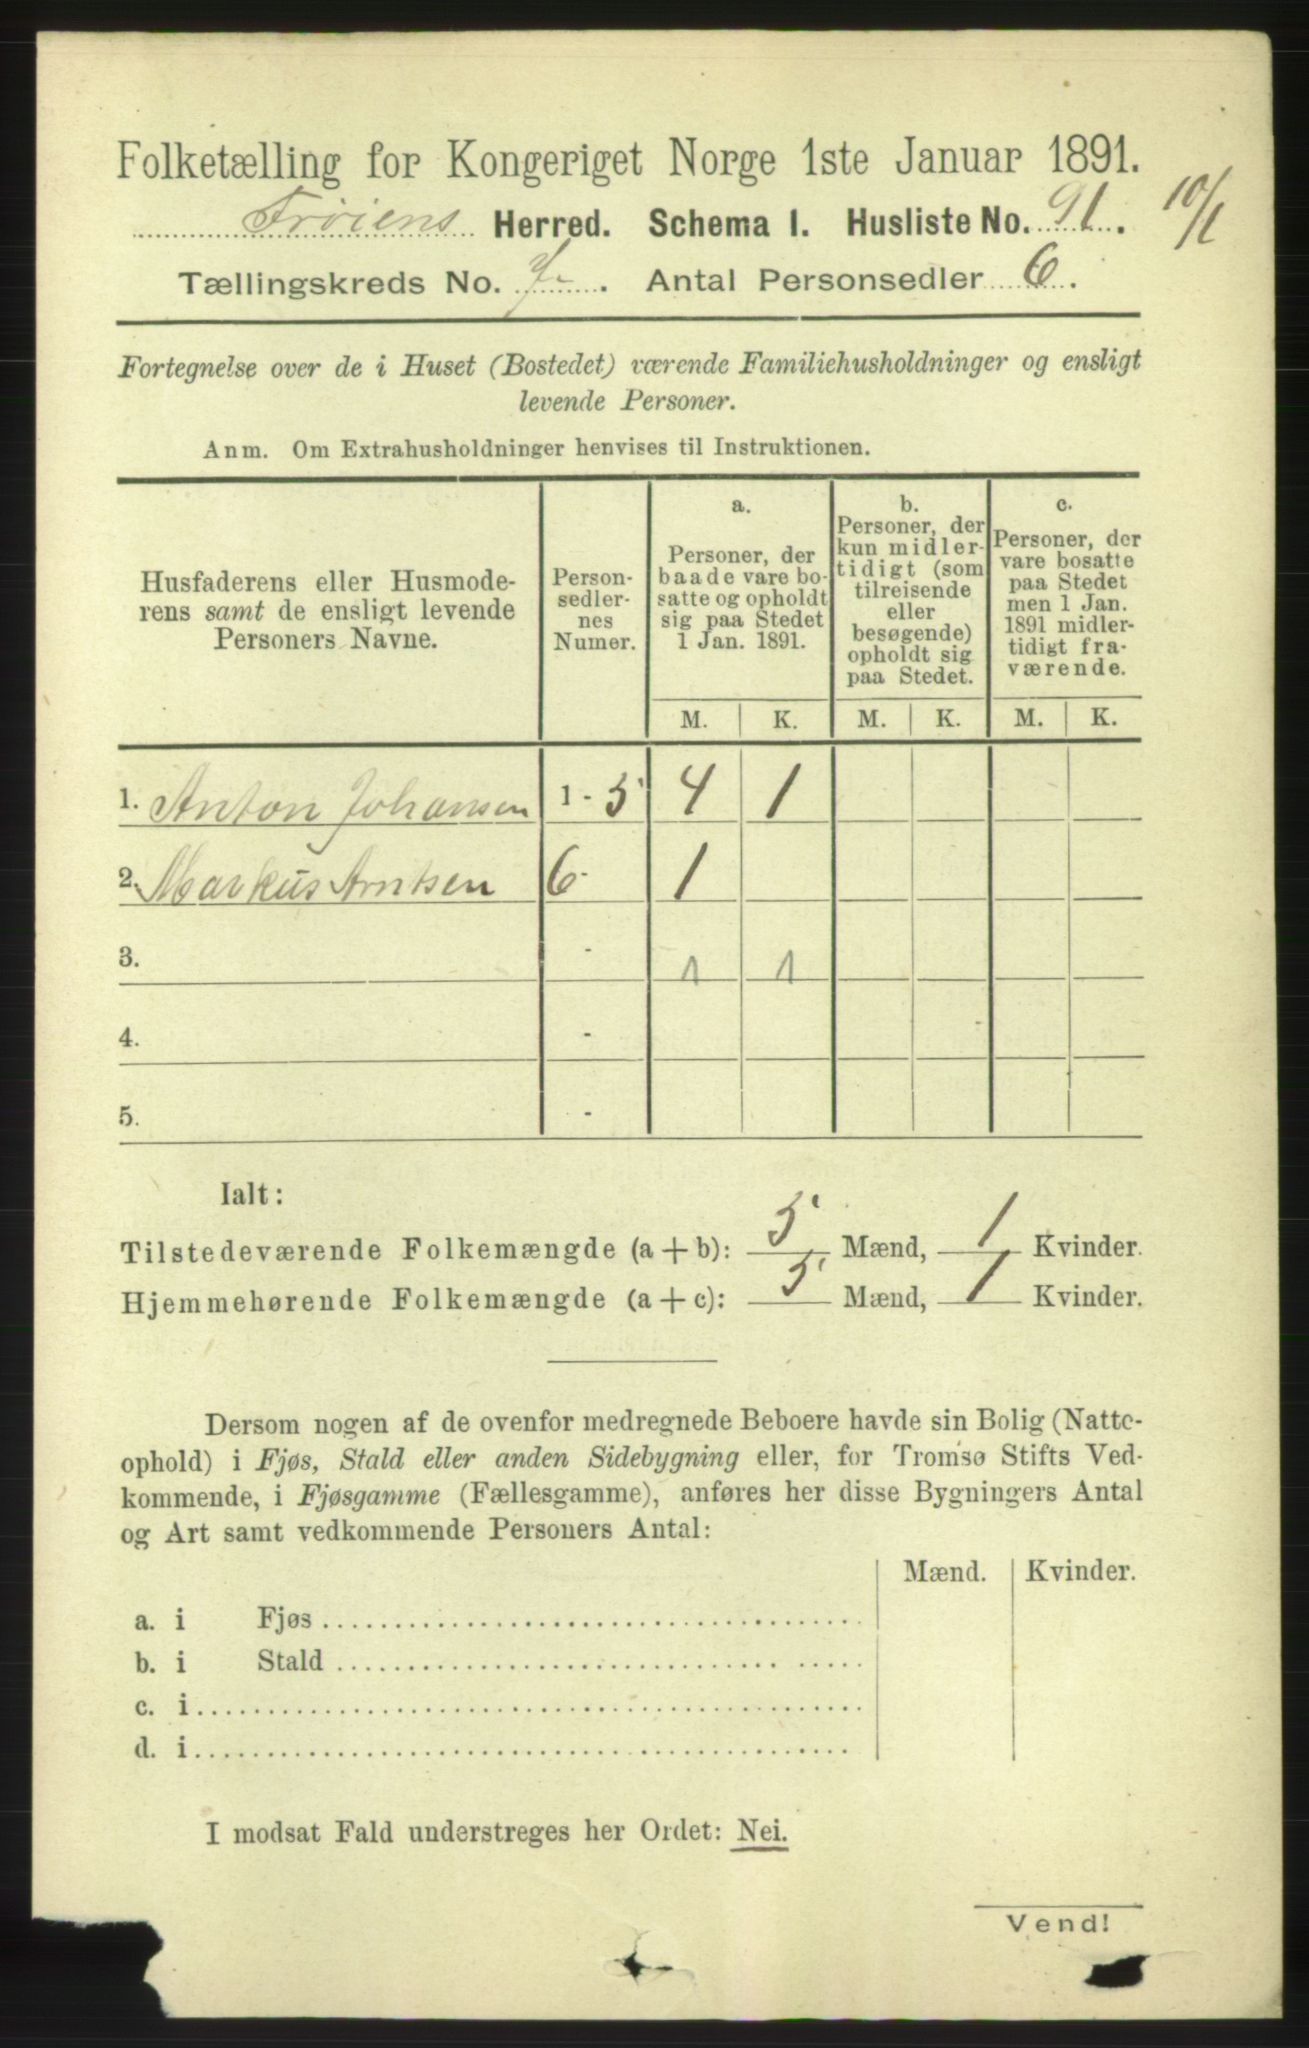 Folketælling for Kongeriget Norge 1ste Januar 1891.
Frøiens Herred. Schema I. Husliste No. 91.
10/1
Tællingskreds No. 7. Antal Personsedler 6.
Fortegnelse over de i Huset (Bostedet) værende Familiehusholdninger og ensligt
levende Personer.
Anm. Om Extrahusholdninger henvises til Instruktionen.
Husfaderens eller Husmode-
rens samt de ensligt levende
Personers Navne.
Person-
sedler-
nes
Numer.
a.
Personer, der
baade vare bo-
satte og opholdt
sig paa Stedet
1 Jan. 1891.
b.
Personer, der
kun midler-
tidigt (som
tilreisende
eller
besøgende)
opholdt sig
paa Stedet.
c.
Personer, der
vare bosatte
paa Stedet
men 1 Jan.
1891 midler-
tidigt fra-
værende.
M. K. M. K. M. K.
1. Anton Johansen 1 - 5 4 1
2. Markus Arntsen 6 - 1
3. - 1 1
4. -
5. -
Ialt:
Tilstedeværende Folkemængde (a + b): 5 Mænd, 1 Kvinder.
Hjemmehørende Folkemængde (a + c): 5 Mænd, 1 Kvinder.
Dersom nogen af de ovenfor medregnede Beboere havde sin Bolig (Natte-
ophold) i Fjøs, Stald eller anden Sidebygning eller, for Tromsø Stifts Ved-
kommende, i Fjøsgamme (Fællesgamme), anføres her disse Bygningers Antal
og Art samt vedkommende Personers Antal:
Mænd. Kvinder.
a. i Fjøs
b. i Stald
c. i
d. i
I modsat Fald understreges her Ordet: Nei.
Vend!